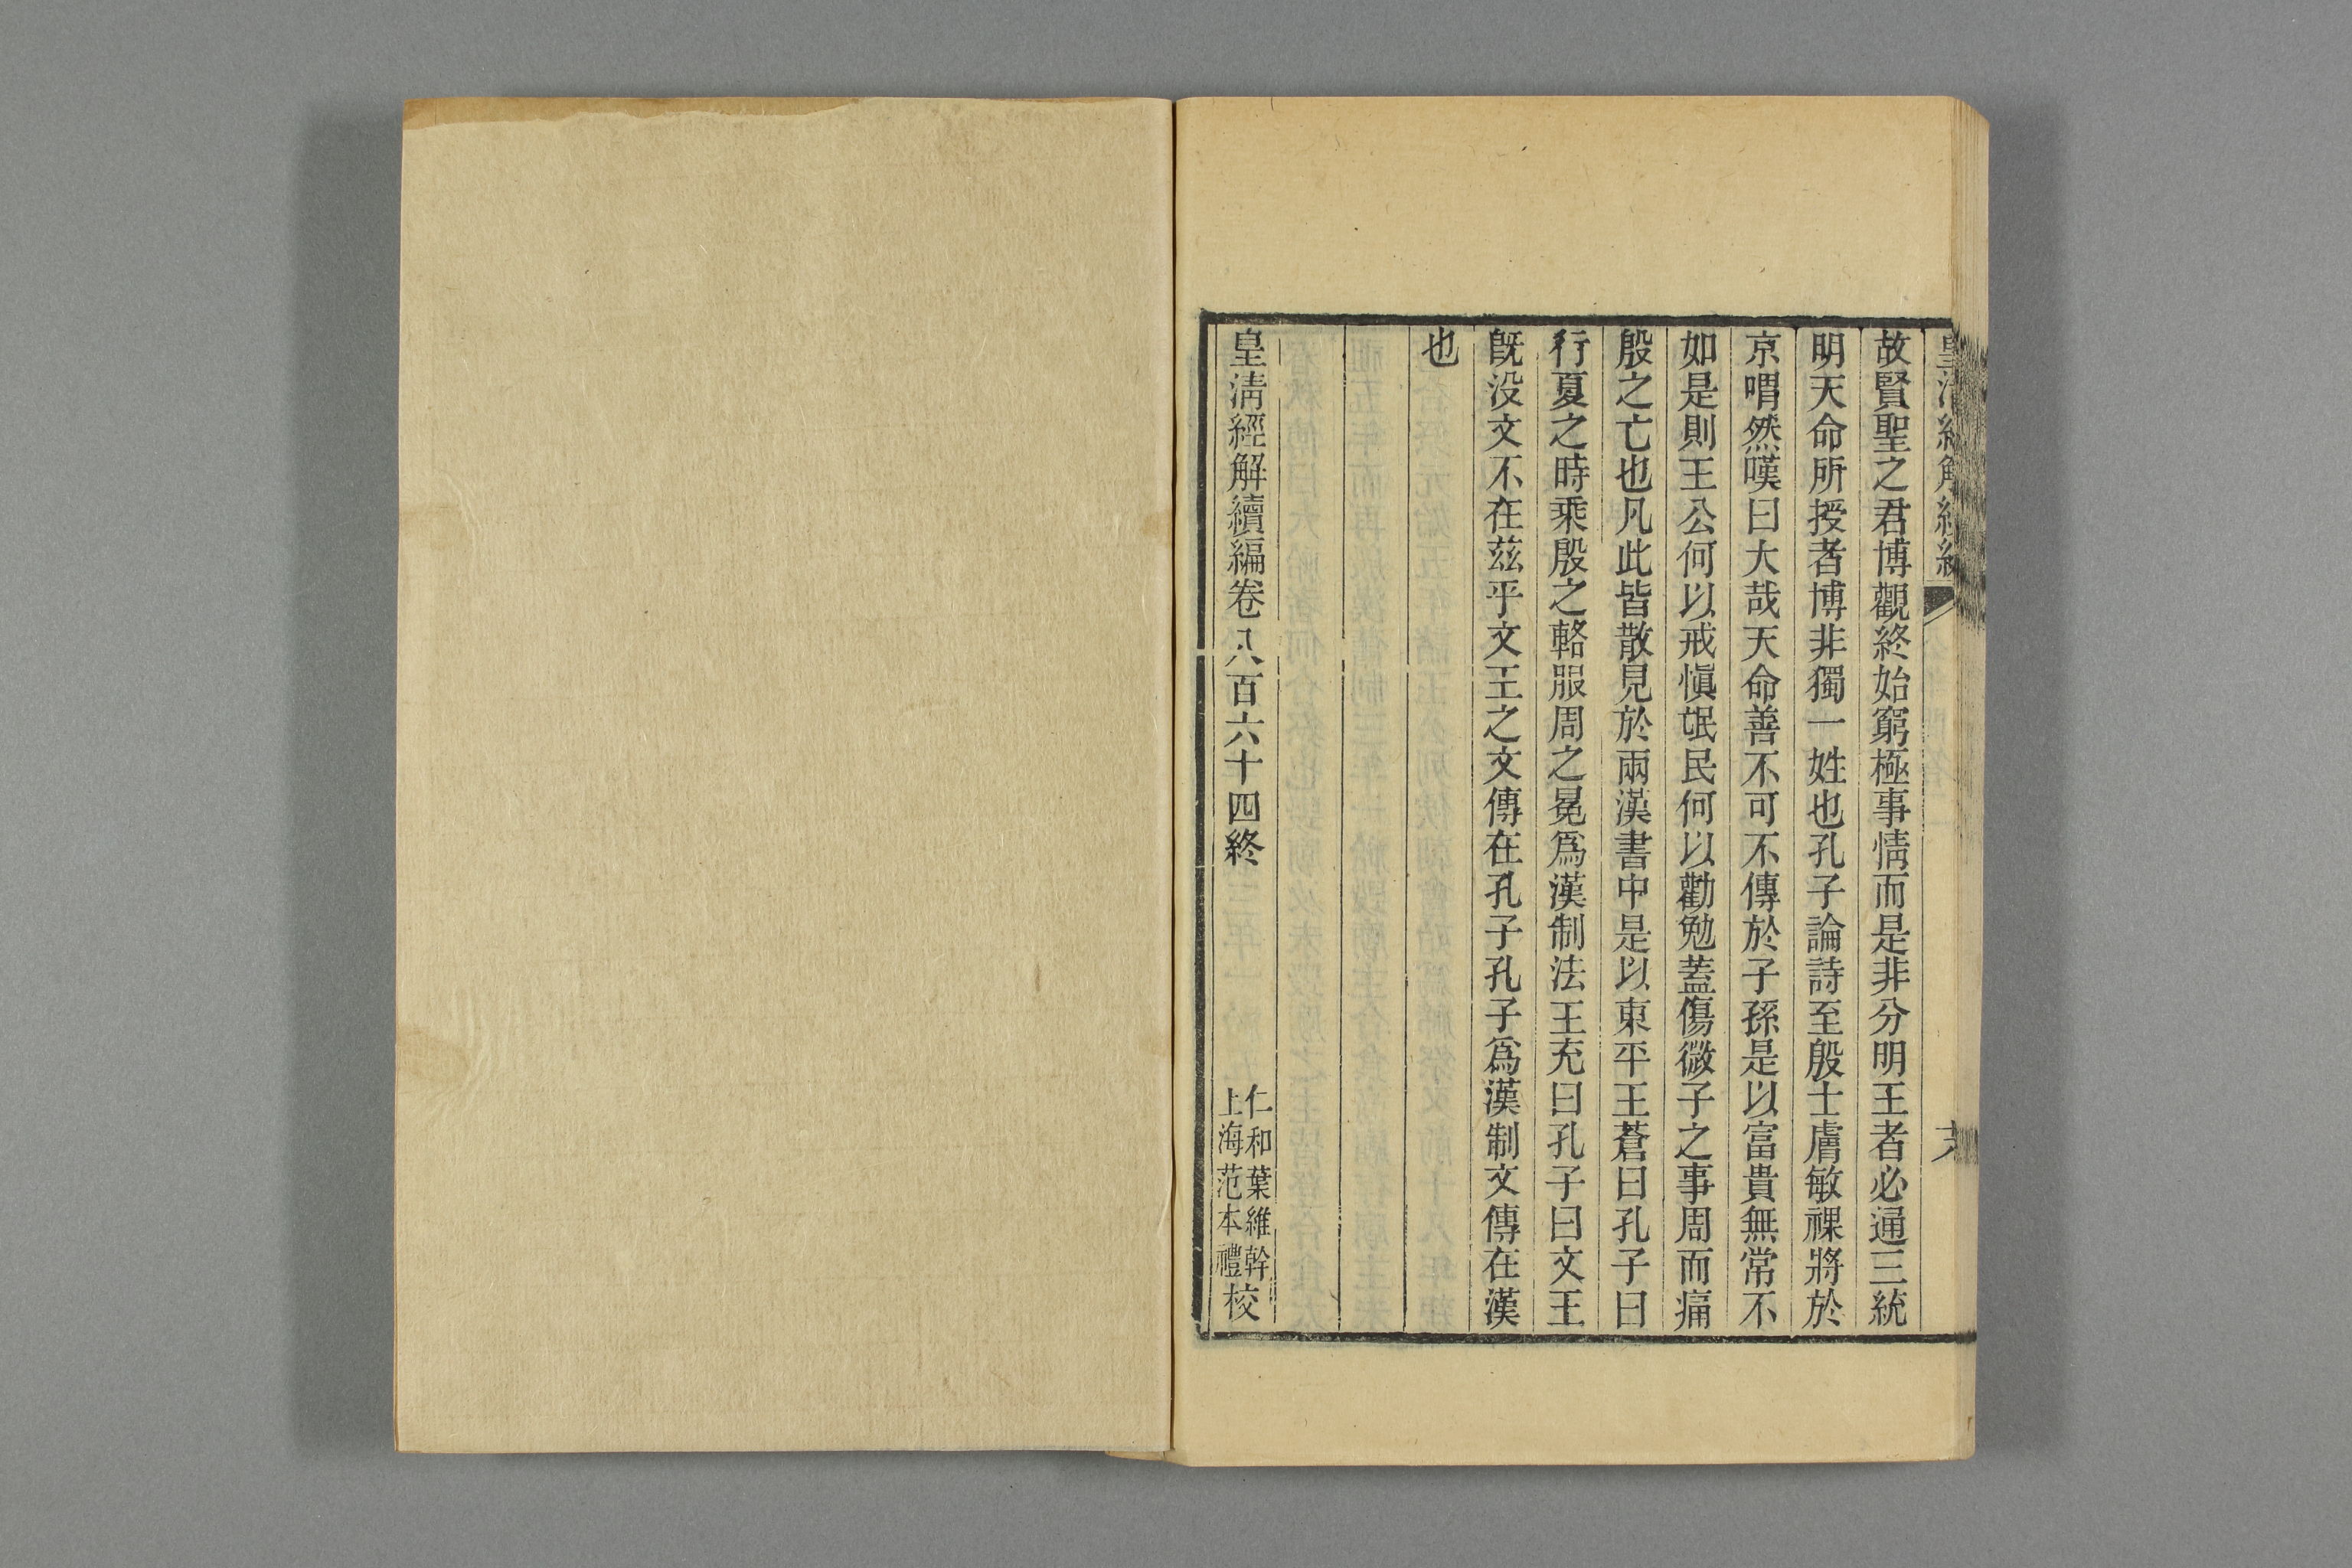 皇清經解續編
故賢聖之君博觀終始窮極事情而是非分明王者必通三統
明天命所授者博非獨一姓也孔子論詩至殷士膚敏祼將於
京喟然嘆曰大哉天命善不可不傳於子孫是以富貴無常不
如是則王公何以戒慎氓民何以勸勉蓋傷微子之事周而痛
殷之亡也凡此皆散見於兩漢書中是以東平王蒼曰孔子曰
行夏之時乘殷之輅服周之冕爲漢制法王充曰孔子曰文王
旣没文不在茲乎文王之文傳在孔子孔子爲漢制文傳在漢
也
皇清經解續編卷八百六十四終
仁和葉維幹
上海范本禮
校